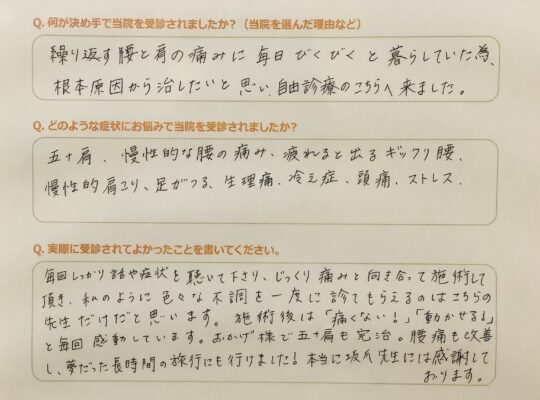 Q. 何が決め手で当院を受診されましたか？（当院を選んだ理由など）
繰り返す腰と肩の痛みに毎日びくびくと暮らしていた為、
根本原因から治したいと思い、自由診療のこちらへ来ました。
Q. どのような症状にお悩みで当院を受診されましたか？
五十肩、慢性的な腰の痛み、疲れると出るギックリ腰、
慢性的肩こり、足がつる、生理痛、冷え症、頭痛、ストレス、
Q. 実際に受診されてよかったことを書いてください。
毎回しっかり話や症状を聴いて下さり、じっくり痛みと向き合って施術して
頂き、私のように色々な不調を一度に診てもらえるのはこちらの
先生だけだと思います。施術後は「痛くない！」「動かせる！」
と毎回感動しています。おかげ様で五十肩も完治。腰痛も改善
し、夢だった長時間の旅行にも行けました！本当に坂爪先生には感謝して
おります。